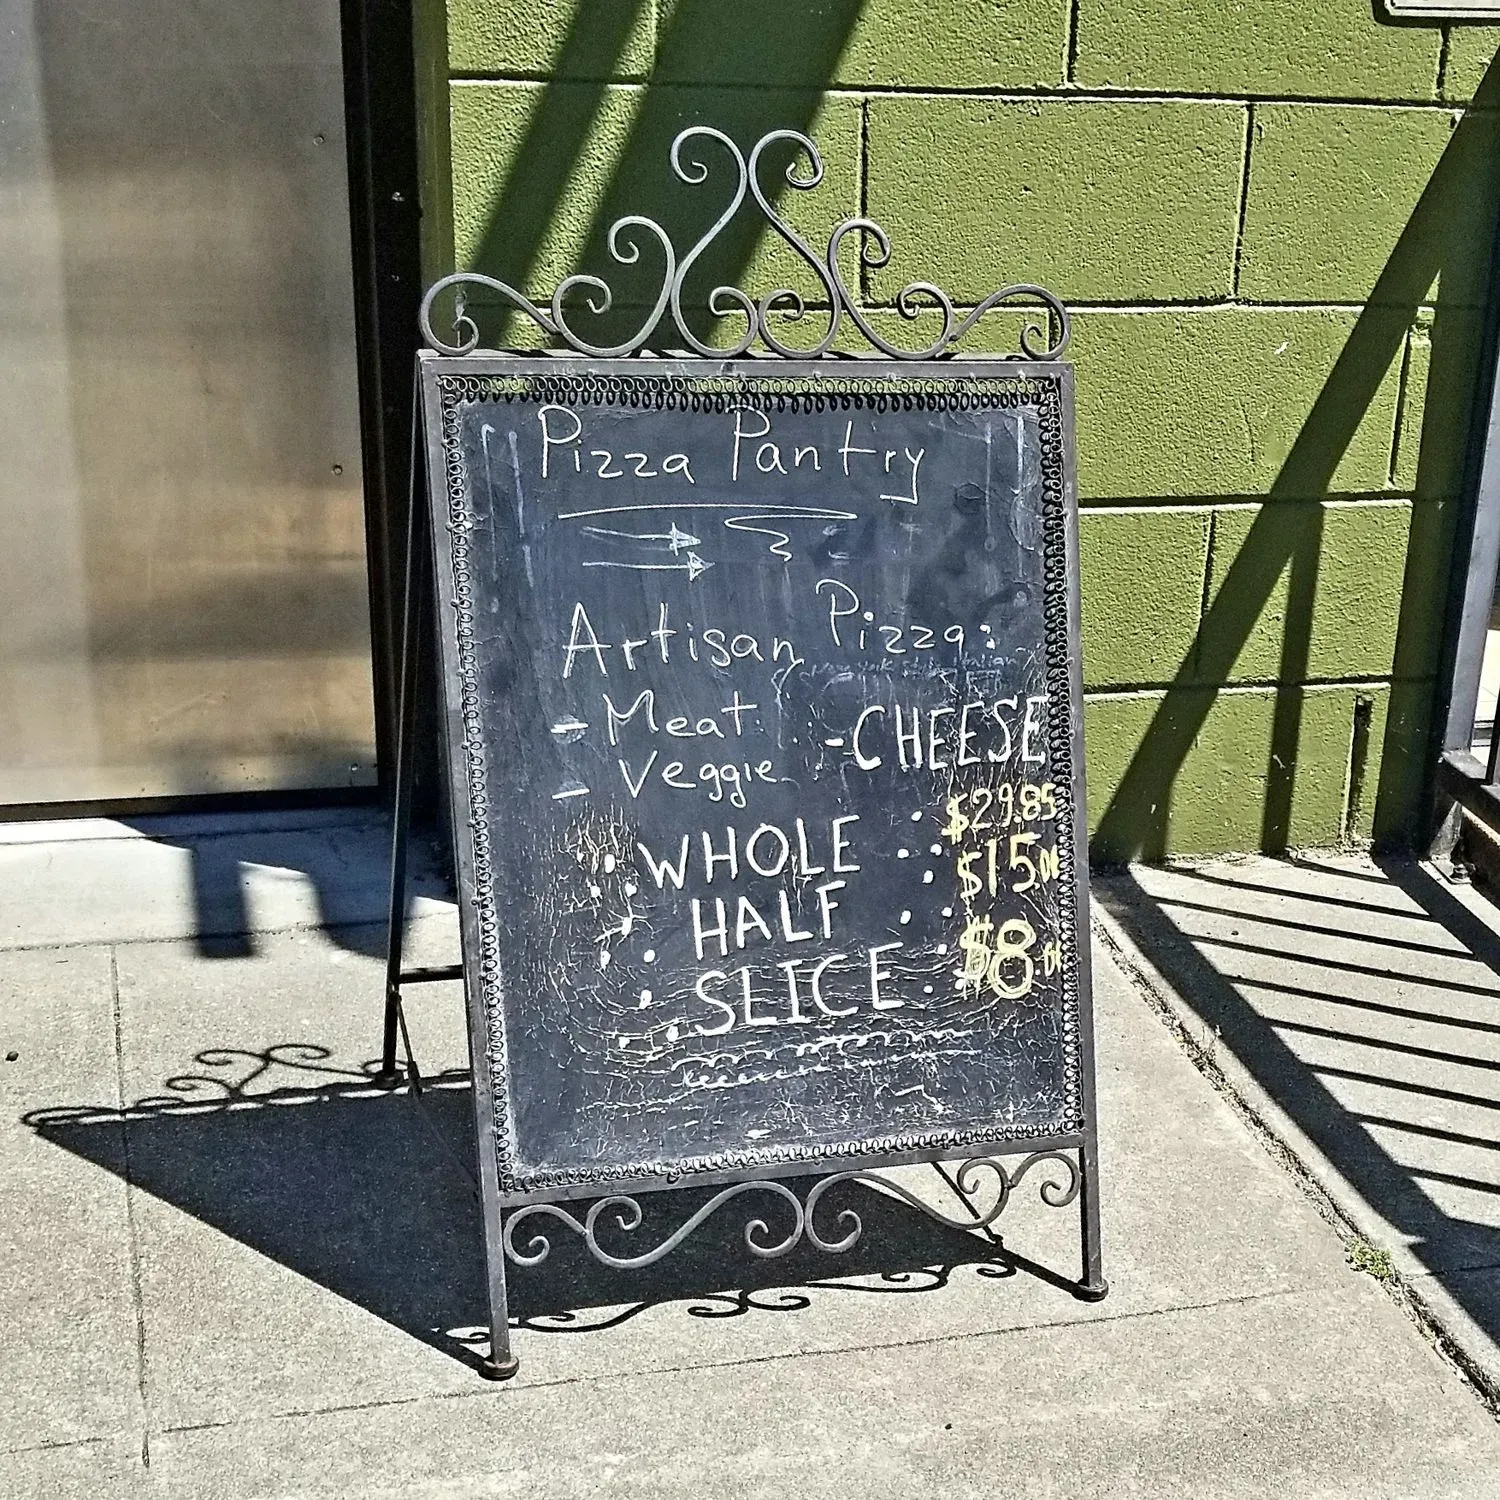 Pizza Pantry
Artisan Pizza:
- Meat
- CHEESE
- Veggie
WHOLE : $29.85
HALF : $15.00
SLICE : $8.